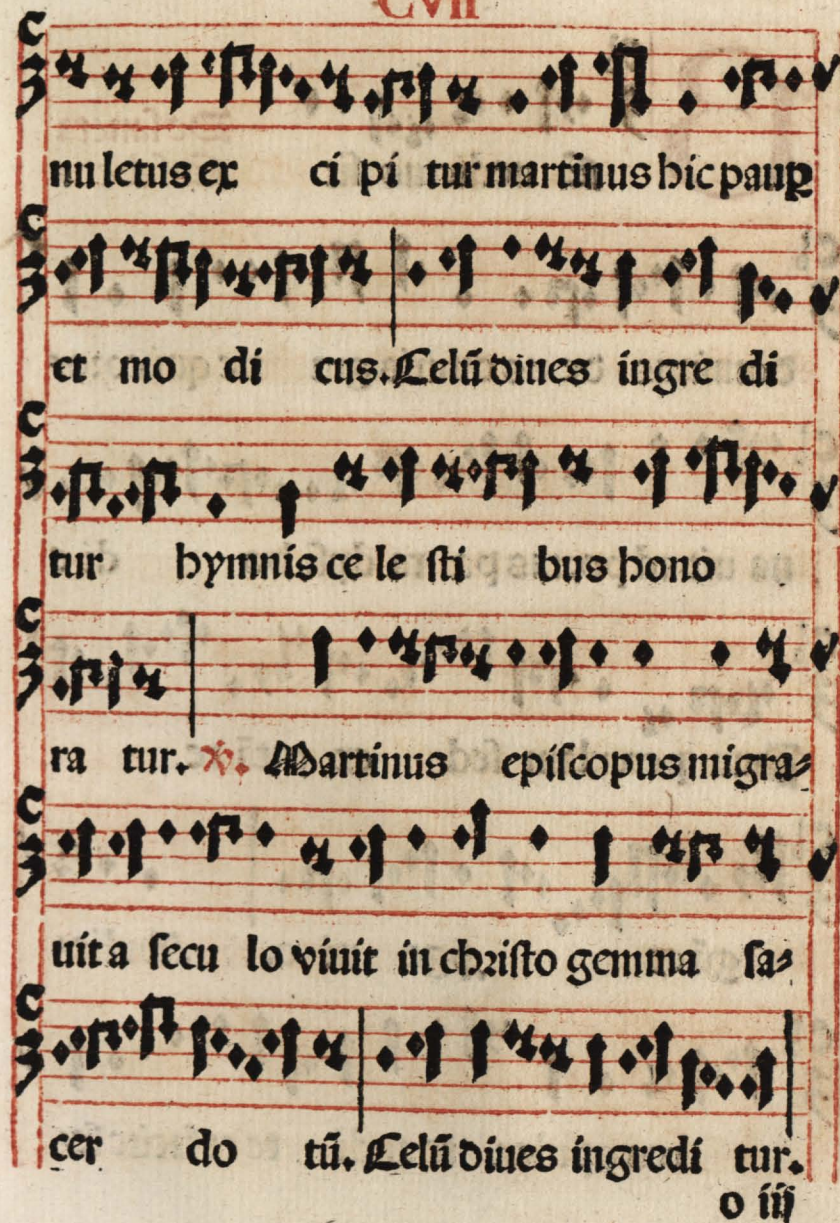 CVII
nu letus ex ci pi tur martinus hic paup̲
et mo di cus. Celū diues ingre di
tur hymnis ce le sti bus hono
ra tur. ℣. Martinus episcopus migra⸗
uit a secu lo viuit in christo gemma sa⸗
cer do tū. Celū diues ingredi tur.
o iij